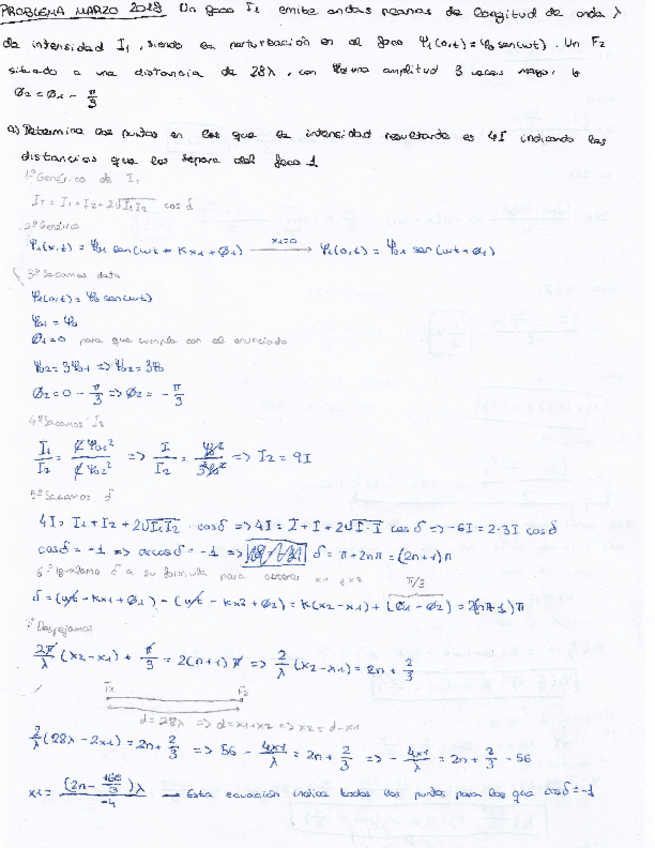 PROBLEMA MARZO 2018 Un foco I₁ emite ondas planas de longitud de onda λ
de intensidad I₁, siendo la perturbación en el foco Ψ₁(0,t) = Ψ₀ sen(ωt). Un F2
situado a una distancia de 28λ, con una amplitud 3 veces mayor
Ø₂ = Ø₁ - π/3
a) Determina los puntos en los que la intensidad resultante es 4I indicando las
distancias que los separa del foco 1
1º Genérico de I₁
I_T = I₁ + I₂ + 2√(I₁I₂) cos δ
2º Genérico
Ψ₁(x,t) = Ψ₀₁ sen(ωt - Kx₁ + Ø₁) —x₁=0→ Ψ₁(0,t) = Ψ₀₁ sen(ωt + Ø₁)
3º Sacamos data
Ψ₁(0,t) = Ψ₀ sen(ωt)
Ψ₀₁ = Ψ₀
Ø₁ = 0 para que cumpla con el enunciado
Ψ₀₂ = 3Ψ₀₁ => Ψ₀₂ = 3Ψ₀
Ø₂ = 0 - π/3 => Ø₂ = -π/3
4º Sacamos I₂
I₁/I₂ = ȼΨ₀₁²/ȼΨ₀₂² => I/I₂ = Ψ₀²/3Ψ₀² => I₂ = 9I
5º Sacamos δ
4I = I₁ + I₂ + 2√(I₁I₂) cos δ => 4I = I + I + 2√(I·I) cos δ => -6I = 2·3I cos δ
cos δ = -1 => arcos δ = -1 => δ = π + 2nπ = (2n+1)π
6º Igualamos δ a su formula para obtener x1 y x2
π/3
δ = (ωt - Kx₁ + Ø₁) - (ωt - Kx₂ + Ø₂) = K(x₂ - x₁) + (Ø₁ - Ø₂) = 2(n+1)π
7º Despejamos
2π/λ (x₂ - x₁) + π/3 = 2(n+1)π => 2/λ (x₂ - x₁) = 2n + 2/3
F₁ F₂
d = 28λ => d = x₁ + x₂ => x₂ = d - x₁
2/λ (28λ - 2x₁) = 2n + 2/3 => 56 - 4x₁/λ = 2n + 2/3 => - 4x₁/λ = 2n + 2/3 - 56
x₁ = (2n - 166/3)λ / -4 — Esta ecuación indica todos los puntos para los que cos δ = -1